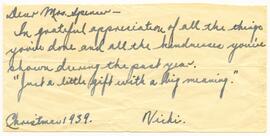 Dear Mrs. Spencer –
In grateful appreciation of all the things
you've done and all the kindnesses you've
shown during the past year.
"Just a little gift with a big meaning."
Christmas 1939. Vicki.